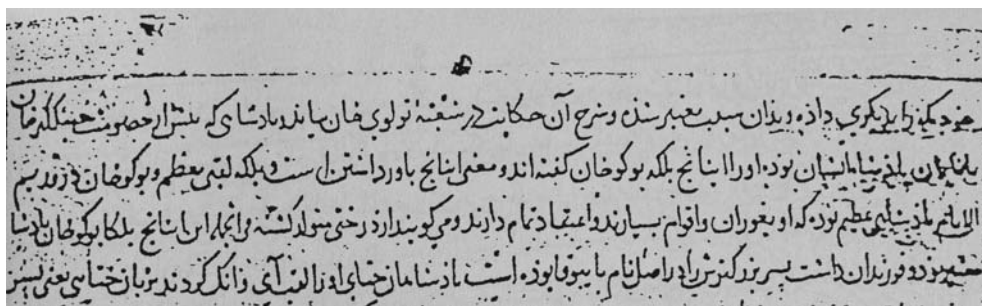 خود یکی را بدیگری داذه و بدان سبب معتبر شذه و شرح آن حکایت در شعبهٔ تولوی خان بیاید و پادشاهی که پیش از خصومت چینگگیزخان
با نایمان پادشاه ایشان بوده او را اینانچ بلکه بوکو خان گفته اند و معنی اینانچ باور داشتن است و بلکه لقبی معظم و بوکو خان در قدیم
الایام پادشاهی عظیم بوده که اویغوران و اقوام بسیار بدو اعتقاد تمام دارند و می گویند از درختی متولد گشته و این اینانچ بلکا بوکو خان پادشاه
معتبر بود و فرزندان داشت پسر بزرگترش را در اصل نام بایبوقا بوده است پادشاهان ختای او را لقب آی وانک کردند بزبان ختایی یعنی پسر